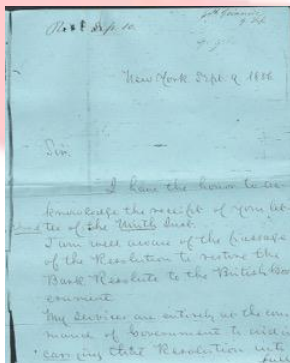 Sept. 10.
New York Sept. 9, 1856
Sir.
I have the honor to ac
knowledge the receipt of your let
ter of the Inst.
I am well aware of the passage
of the Resolution to restore the
Bark Resolute to the British Gov
ernment.
My services are entirely at the com
mand of Government to aid in
carrying that Resolution into
full